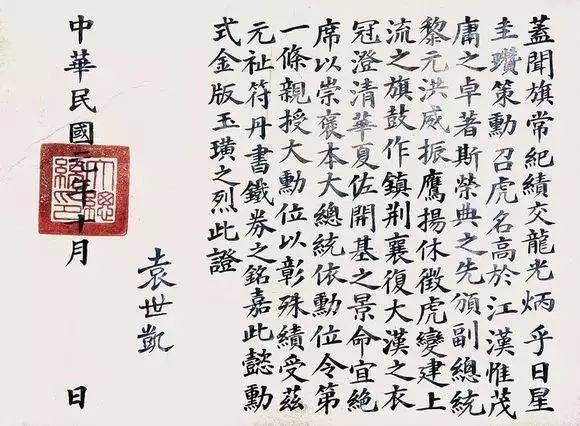 蓋聞旗常紀績交龍光炳乎日星
圭瓚策勳召虎名高於江漢惟茂
庸之卓著斯榮典之先頒副總統
黎元洪威振鷹揚休徵虎變建上
流之旗鼓作鎮荆襄復大漢之衣
冠澄清華夏佐開基之景命宜絶
席以崇褒本大總統依勳位令第
一條親授大勳位以彰殊績受茲
元祉符丹書鐵券之銘嘉此懿勳
式金版玉璜之烈此證
袁世凱
中華民國二年十月 日